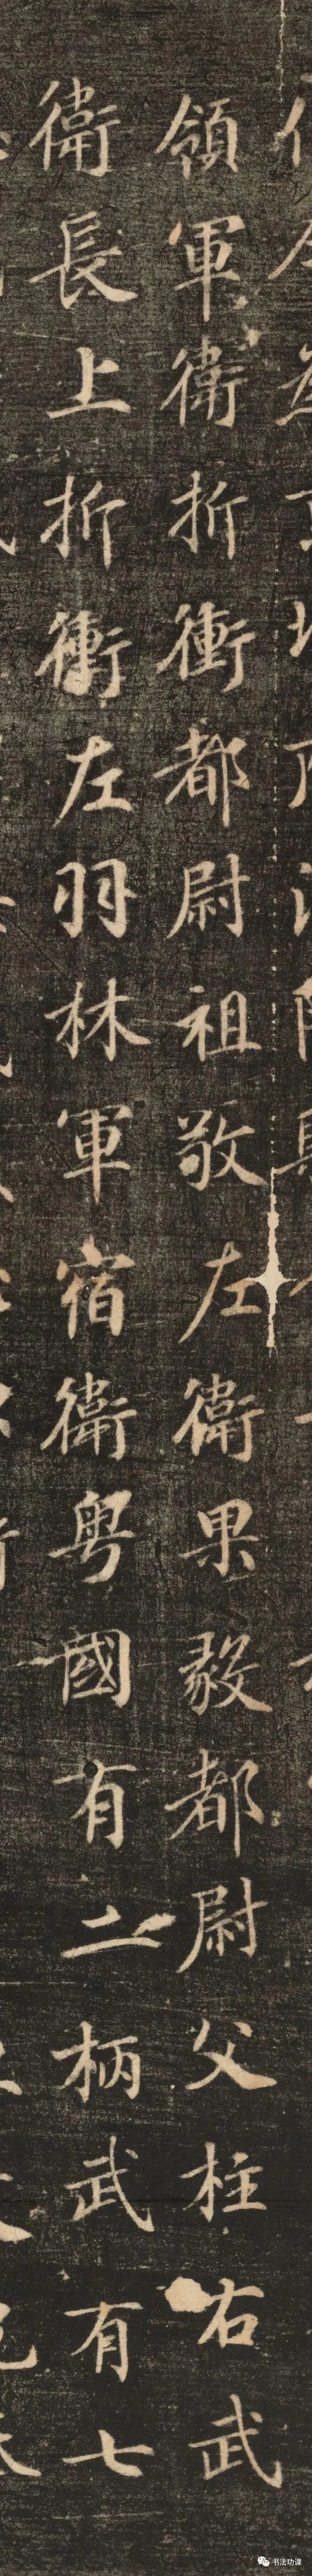 領軍衛折衝都尉祖敬左衛果毅都尉父柱右武
衛長上折衝左羽林軍宿衛粤國有二柄武有七
书法功课